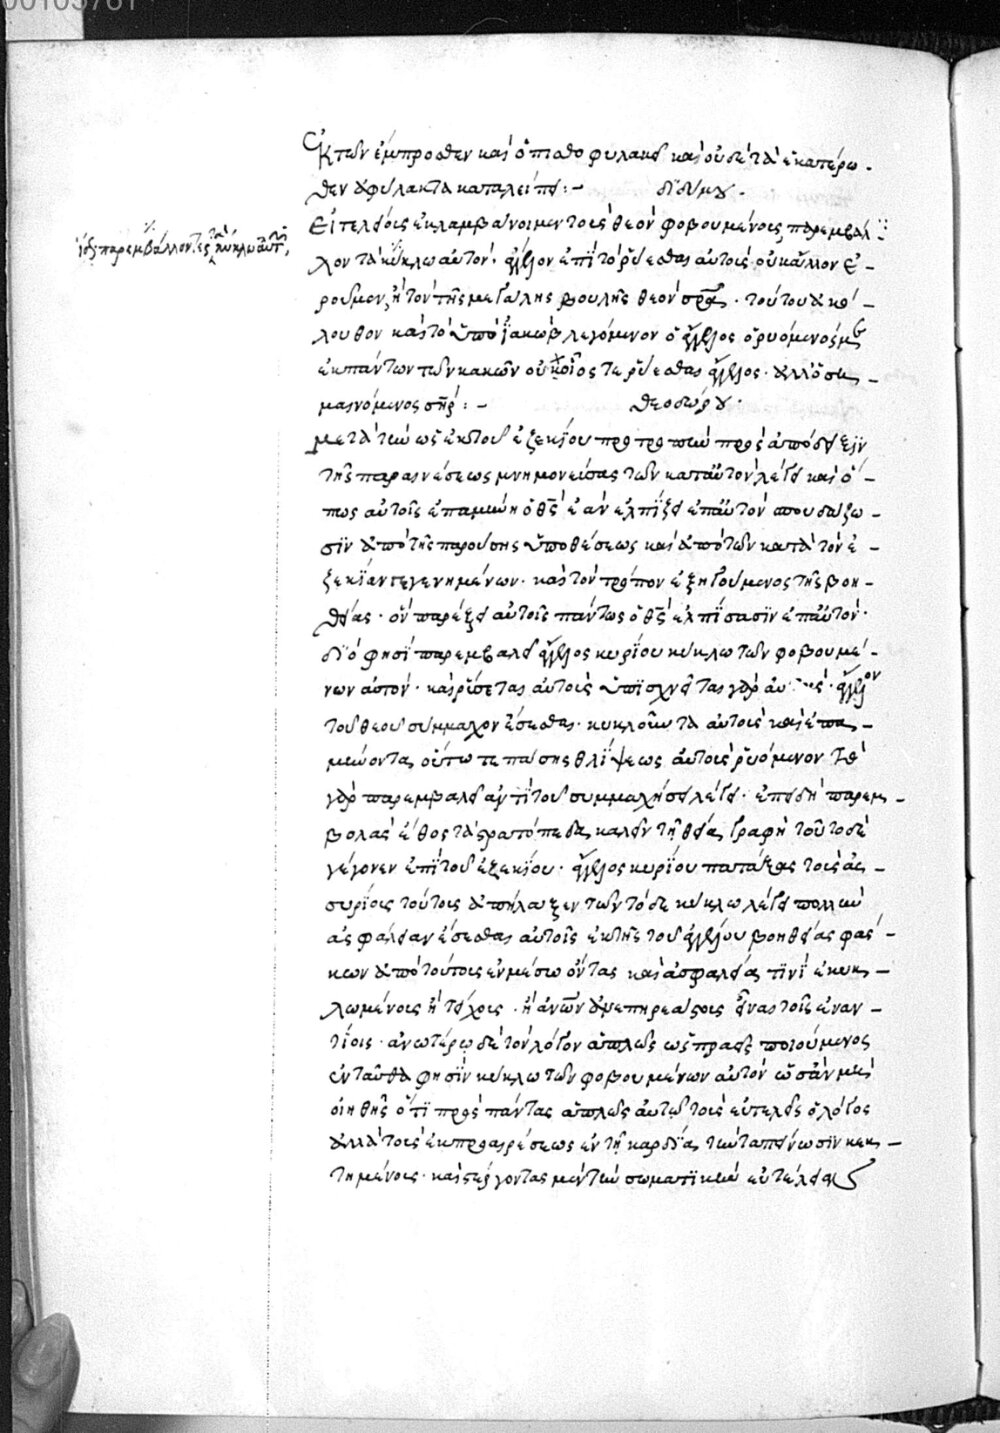 00105761
Ἐκ τῶν ἔμπροσθεν καὶ ὄπισθο φυλακεῖ καὶ οὐδὲ τὰ ἑκατέρω-
θεν ἀφύλακτα καταλείπει:- διδύμου.
Εἰ τελείοις ἐκλαμβάνοιμεν τοὺς θεὸν φοβουμένους, παρεμβάλ
λοντα κύκλω αὐτῶν ἄγγελον ἐπὶ τὸ ῥύεσθαι αὐτοὺς οὐκ ἄλλον ἐ-
ροῦμεν, ἢ τὸν τῆς μεγάλης βουλῆς θεὸν. τούτου ἀκό-
λουθον καὶ τὸ ὑπὸ ἰακὼβ λεγόμενον ὁ ἄγγελος ὁ ῥυόμενός με
ἐκ πάντων τῶν κακῶν οὐχ οἷός τε ῥύεσθαι ἄγγελος. ἀλλ' ὁ ση-
μαινόμενος σωτήρ:- θεοδώρου.
μετὰ τὴν ὡς ἐκ τοῦ ἐζεκίου προτροπὴν πρὸς ἀπόδειξιν
τῆς παραινέσεως μνημονεύσας τῶν κατ' αὐτὸν λέγει καὶ ὅ-
πως αὐτοῖς ἐπαμύνει ὁ θεὸς ἐὰν ἐλπίζειν ἐπ' αὐτὸν σπουδάζω-
σιν ἀπὸ τῆς παρούσης ὑποθέσεως καὶ ἀπὸ τῶν κατὰ τὸν ἐ-
ζεκίαν γεγενημένων. καὶ τὸν τρόπον ἐξηγούμενος τῆς βοη-
θείας. ὃν παρέξει αὐτοῖς πάντως ὁ θεὸς ἐλπίσασιν ἐπ' αὐτὸν.
διό φησι παρεμβαλεῖ ἄγγελος κυρίου κύκλω τῶν φοβουμέ-
νων αὐτὸν. καὶ ῥύσεται αὐτοὺς ὑπισχνεῖται γὰρ ἄγγελον
τοῦ θεοῦ σύμμαχον ἔσεσθαι. κυκλοῦντα αὐτοὺς καὶ ἐπα-
μύνοντα, οὕτω τε πάσης θλίψεως αὐτοὺς ῥυόμενον τὸ
γὰρ παρεμβαλεῖ ἀντὶ τοῦ συμμαχήσει λέγει. ἐπειδὴ παρεμ-
βολὰς ἔθος τὰ στρατόπεδα, καλεῖν τῇ θεία γραφῇ τοῦτο δὲ
γέγονεν ἐπὶ τοῦ ἐζεκίου. ἄγγελος κυρίου πατάξας τοὺς ἀσ-
συρίους τούτους ἀπήλαξεν τῶν τὸ δὲ κύκλω λέγει πολλὴν
ἀσφάλειαν ἔσεσθαι αὐτοῖς ἐκ τῆς τοῦ ἀγγέλου βοηθείας φάσ-
κων ἀπὸ τούτους ἐν μέσω ὄντας καὶ ἀσφαλείας τινὶ ἐκυκ-
λωμένοις ἢ τείχοις. ἢ ἀνεπηρεάστους εἶναι τοῖς ἐναν-
τίοις. ἀνωτέρω δὲ τὸν λόγον ἁπλῶς ὡς πραεῖς ποιούμενος
ἐνταῦθα φησὶν κύκλω τῶν φοβουμένων αὐτὸν ὡς ἂν μὴ
οἰηθῇς ὅτι πρὸς πάντας ἁπλῶς αὐτῷ τοὺς εὐτελεῖς ὁ λόγος
ἀλλὰ τοὺς ἐκ προαιρέσεως ἐν τῇ καρδία, τὴν ταπείνωσιν κεκ-
τημένους. καὶ στέργοντας μὲν τὴν σωματικὴν εὐτέλειαν